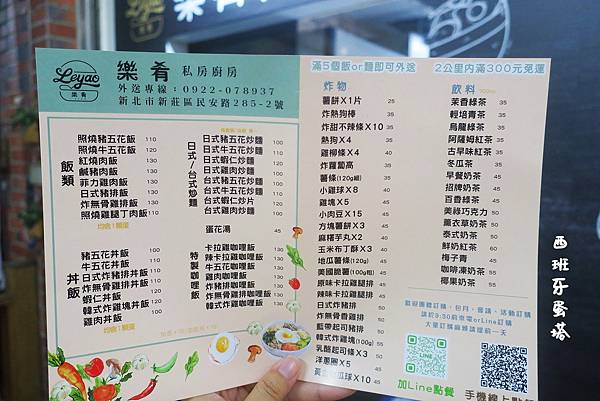 Leyao
樂肴
樂肴 私房廚房
外送專線:0922-078937
新北市新莊區民安路285-2號
滿5個飯or麵即可外送 2公里內滿300元免運
飯類
照燒豬五花飯 110
照燒牛五花飯 110
紅燒肉飯 130
鹹豬肉飯 130
菲力雞肉飯 130
日式豬排飯 130
炸無骨雞排飯 130
照燒雞腿丁肉飯 110
均含1顆蛋
丼飯
豬五花丼飯
牛五花丼飯
日式炸豬排丼飯
炸無骨雞排丼飯
蝦仁丼飯
韓式炸雞塊丼飯
雞肉丼飯
均含1顆蛋
日式/台式炒麵
日式豬五花炒麵 100
日式牛五花炒麵
日式蝦仁炒麵
日式雞肉炒麵
台式豬五花炒麵
台式牛五花炒麵
台式蝦仁炒麵
台式雞肉炒麵
蛋花湯 30
特製咖哩飯
卡拉雞咖哩飯
辣卡拉雞咖哩飯
牛五花咖哩飯
雞肉咖哩飯
日式炸豬排咖哩飯
炸無骨雞排咖哩飯
蝦仁咖哩飯
韓式炸雞咖哩飯
豬五花咖哩飯
炸物
薯餅X1片 25
炸熱狗棒 35
炸甜不辣條X10 35
熱狗X4 35
雞柳條X4 40
炸蘿蔔高
薯條(120g細)
小雞球X8 40
雞塊X5
小肉豆X15
方塊薯餅X3
麻糬芋丸X2
玉米布丁酥X3
地瓜薯條(120g)
美國脆薯(100g粗)
原味卡拉雞腿排
辣味卡拉雞腿排
日式炸豬排
炸無骨香雞排
藍帶起司豬排
韓式炸雞塊(100g)
乳酪起司條X3 50
洋蔥圈X5
飲料
茉香綠茶
輕培青茶
烏龍綠茶
阿薩姆紅茶
古早味紅茶
冬瓜茶
早餐奶茶
招牌奶茶
百香綠茶
美祿巧克力
薰衣草奶茶
泰式奶茶
鮮奶紅茶
梅子青
咖啡凍奶茶
椰果奶茶
歡迎團體訂購,包月、餐議、活動訂購
請於9:30前來電orLine訂購
大量訂購麻煩提前一天
加Line點餐
西班牙蛋塔